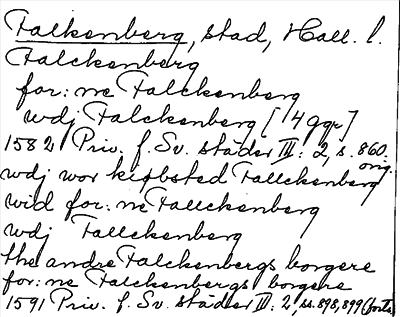 Falkenberg, stad, Hall. l.
Falckenberg
for: ne Falckenberg
wdj Falckenberg [14 ggr]
1582 Priv. f. Sv. städer III: 2, s. 860. orig.
wdj wor kiøbsted Fallckenberg
wid for: ne Fallckenberg
wdj Fallckenberg
the andre Falckenbergs borgere
for: ne Falckenbergs borgere
1591 Priv. f. Sv. städer III: 2, ss. 898, 899 (forts)